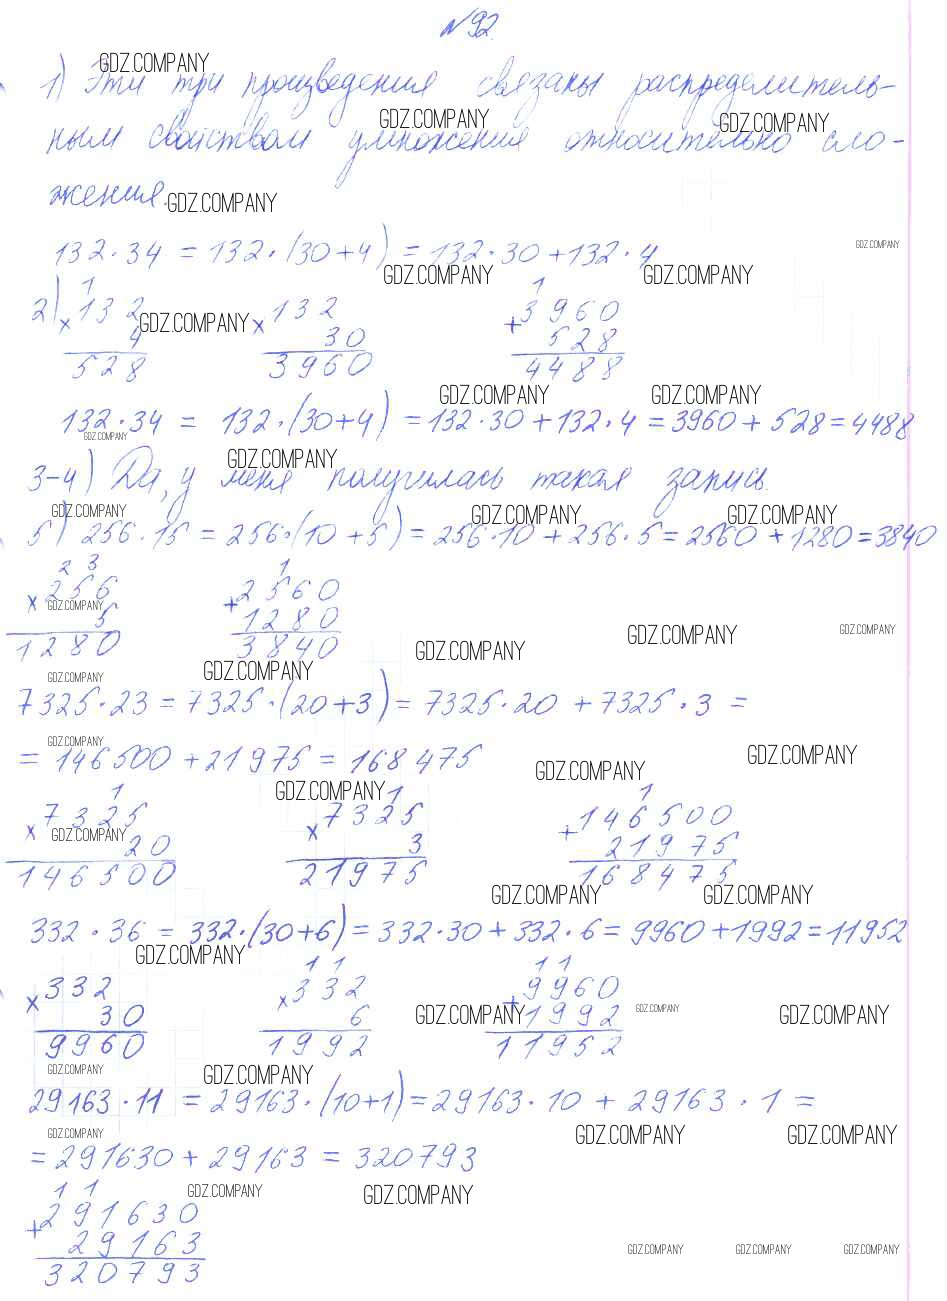 №92.
GDZ.COMPANY
1) Эти три произведения связаны распределитель-
GDZ.COMPANY GDZ.COMPANY
ным свойством умножения относительно сло-
жения. GDZ.COMPANY
132·34 = 132·(30+4) = 132·30+132·4
GDZ.COMPANY
GDZ.COMPANY GDZ.COMPANY
1 1
2) ×132 GDZ.COMPANY ×132 +3960
4 30 528
528 3960 4488
GDZ.COMPANY GDZ.COMPANY
132·34 = 132·(30+4) = 132·30+132·4 = 3960+528=4488
GDZ.COMPANY
GDZ.COMPANY
3-4) Да, у меня получилась такая запись.
GDZ.COMPANY GDZ.COMPANY GDZ.COMPANY
5) 256·15 = 256·(10+5) = 256·10+256·5=2560+1280=3840
2 3 1
×256 +2560
GDZ.COMPANY
5 1280
1280 3840
GDZ.COMPANY GDZ.COMPANY GDZ.COMPANY
GDZ.COMPANY GDZ.COMPANY
7325·23 = 7325·(20+3) = 7325·20 + 7325·3 =
GDZ.COMPANY
= 146500+21975 = 168475
GDZ.COMPANY GDZ.COMPANY
GDZ.COMPANY
1 1 1
×7325 ×7325 +146500
GDZ.COMPANY
20 3 21975
146500 21975 168475
GDZ.COMPANY GDZ.COMPANY
332·36 = 332·(30+6) = 332·30+332·6=9960+1992=11952
GDZ.COMPANY
1 1 1 1
×332 ×332 +9960
30 6 1992
GDZ.COMPANY GDZ.COMPANY GDZ.COMPANY
9960 1992 11952
GDZ.COMPANY GDZ.COMPANY
29163·11 = 29163·(10+1)=29163·10 + 29163·1 =
GDZ.COMPANY GDZ.COMPANY GDZ.COMPANY
= 291630+29163 = 320793
GDZ.COMPANY GDZ.COMPANY
1 1
+291630
29163
GDZ.COMPANY GDZ.COMPANY GDZ.COMPANY
320793